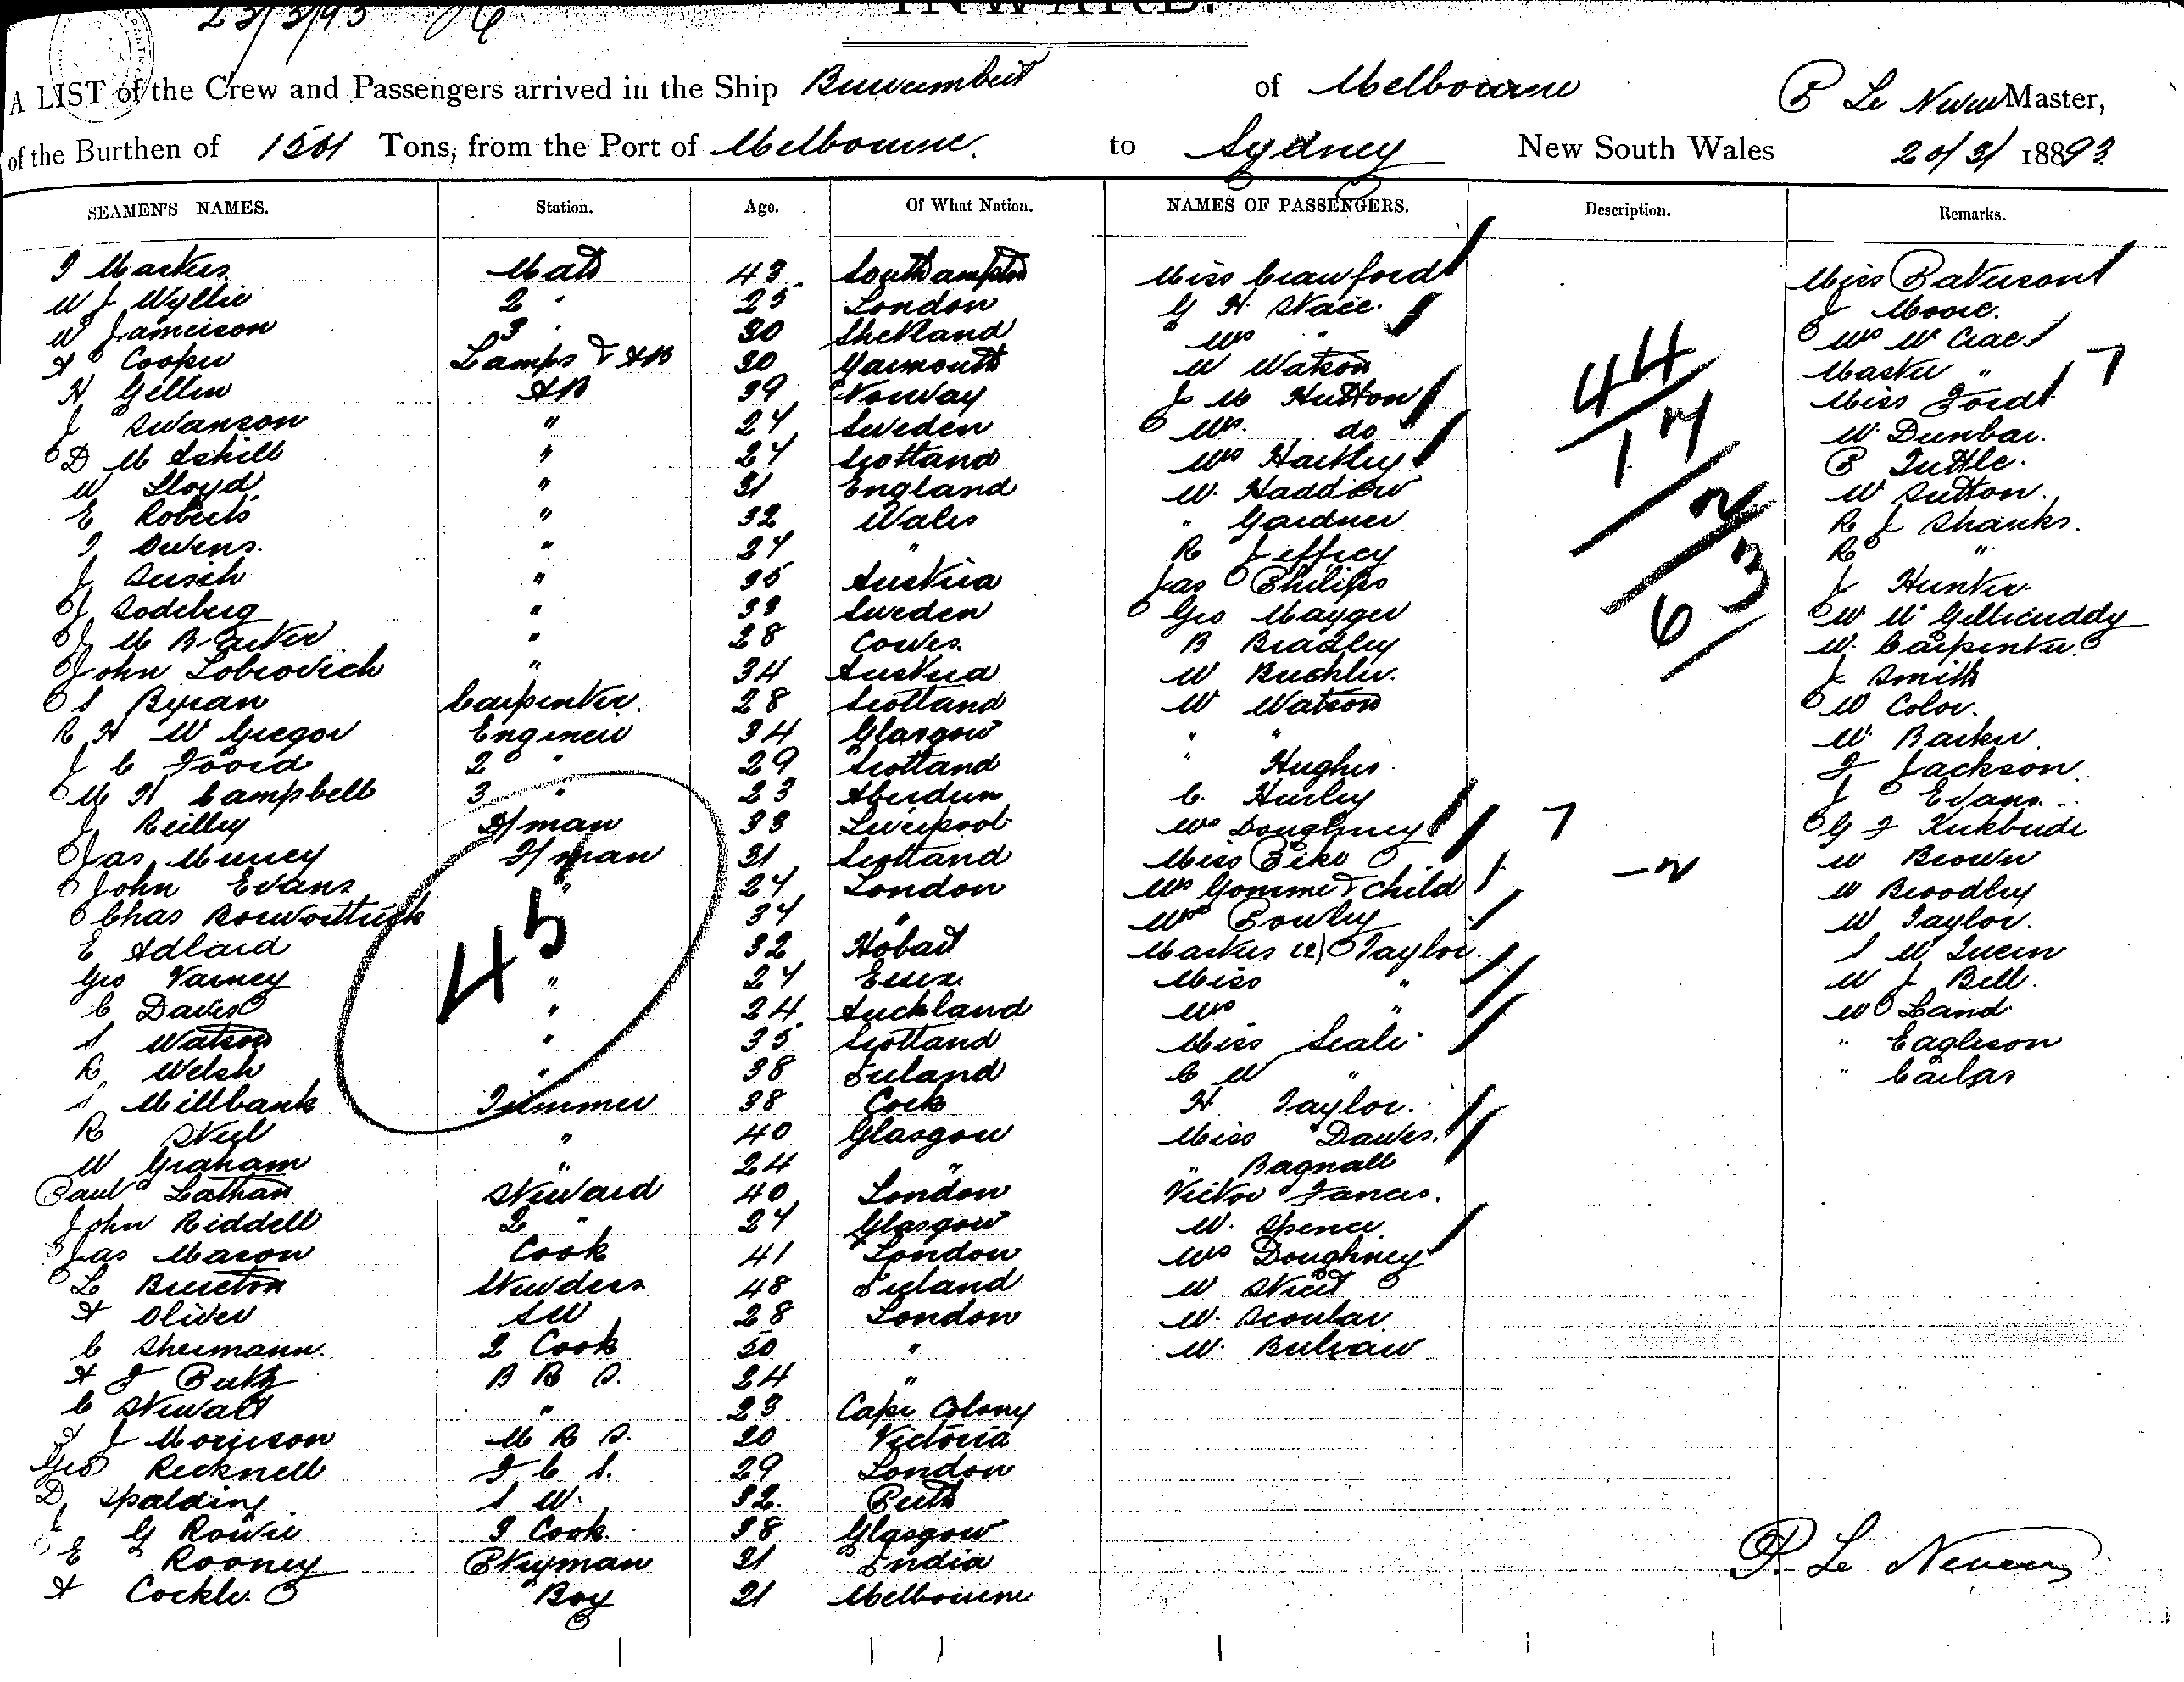 23/3/93
INWARD.
A LIST of the Crew and Passengers arrived in the Ship Burrumbeet of Melbourne P Le Neveu Master,
of the Burthen of Tons, from the Port of Melbourne. to Sydney New South Wales 20/3/ 1893
SEAMEN'S NAMES. Station. Age. Of What Nation. NAMES OF PASSENGERS. Description. Remarks.
Mate 43 Southampton Miss Crawford Miss Paterson
W J Wyllie 2 " 25 London G H Stace J Moore.
W Jameison 3 " 30 Shetland Mrs " Mrs McCrae
A Cooper Lamps & AB 30 Yarmouth W Watson 44 Master " 7
H Gellin AB 39 Norway J M Hutton Miss Ford
J Swanson " 24 Sweden Mrs. do 17 W. Dunbar.
D M Askill " 24 Scotland Mrs Hartley P Tuttle.
W Lloyd " 31 England W. Haddow 2 W Sutton.
E Roberts " 32 Wales " Gardner R J Shanks.
Owens. " 24 " R Jeffrey 3 R "
J " 35 Austria Jas Philips J Hunter
J Sodeberg " 33 Sweden Geo Mayger 6 W McGillicuddy
J M " 28 Cowes. B Bradley W. Carpenter.
John Lobrovich " 34 Austria W Buchler. J Smith
S Byran Carpenter. 28 Scotland W Watson W Color.
R H McGregor Engineer 34 Glasgow " " W. Barker
J C Foord 2 " 29 Scotland " Hughes. Jackson
M H Campbell 3 " 23 Aberdeen C. Hurley J Evans.
J Reilley D/man 33 Liverpool Mrs Doughney 7 G Kirkbride
Jas Muncey F/man 31 Scotland Miss Pike W Brown
John Evans " 24 London Mrs Gomme & Child 2 W Broodley
Chas 45 34 " Mrs Powley W Taylor.
E Adlard 32 Hobart Masters (2) Taylor
Geo Varney " 24 Essex Miss " W J Bell.
C Davis " 24 Auckland Mrs " W Land
S Watson " 35 Scotland Miss Seale " Eagleson
R Welsh " 38 Ireland C W " "
S Millbank Trimmer 38 Cork H Taylor.
R Steel " 40 Glasgow Miss Dawes.
W Graham " 24 " " Bagnall
Paul Lathan Steward 40 London Victor
John Riddell 2 " 24 Glasgow W. Spence.
Jas Mason Cook 41 London Mrs Doughney
L Brereton Stewdess 48 Ireland W
A Oliver SW 28 London W. Scoular
C Shermann. 2 Cook 50 " W.
A B R S. 24 "
C Stewart " 23 Cape Colony
J Morrison M R S. 20 Victoria
Geo Recknell F C S. 29 London
D Spalding S W. 32 Perth
J G Rowie 3 Cook. 38 Glasgow
E Rooney P/tryman 31 India
A Cockle. Boy 21 Melbourne
P. Le Neveu